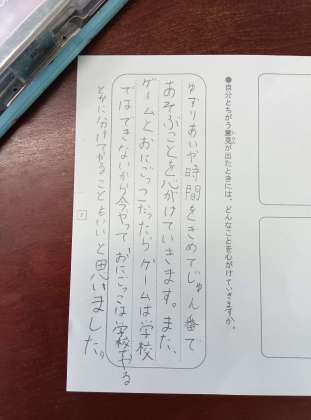 ●自分とちがう意見が出たときには、どんなことを心がけていきますか。
ゆずりあいや時間をきめてじゅん番で
あそぶことを心がけていきます。また、
ゲームとおにごっこだったらゲームは学校
ではできないから今やって、おにごっこは学校でやる
とかに分けてやることもいいと思いました。